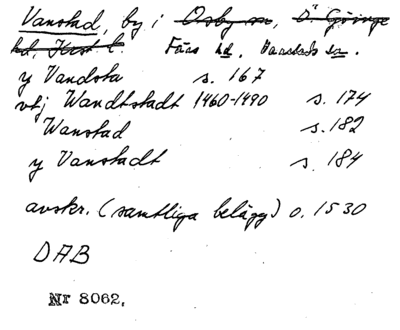 Vanstad, by i Osby sn, Ö Göinge
hd, Krist l. Färs hd, Vanstads sn.
y Vandsta s. 167
vtj Wandtstadt 1460-1490 s. 174
Wanstad s. 182
y Vanstadt s. 184
avskr. (samtliga belägg) o. 1530
DAB
Nr 8062.